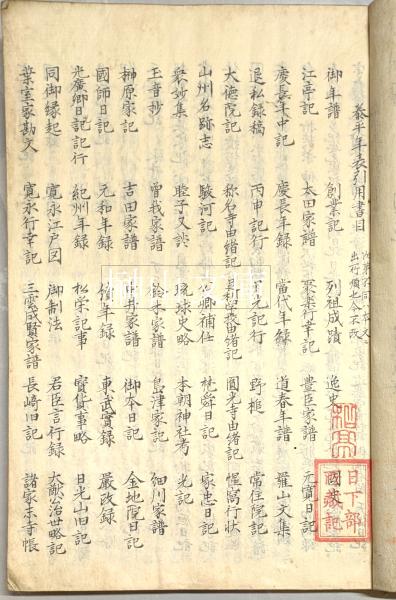 泰平年表引用書目
次第不同本文ノ
出所順也今不改
御年譜 創業記 列祖成蹟 逸史
江亭記 太田家譜 聚楽行幸記 豊臣家譜 元寛日記
慶長年中記 慶長年録 當代年録 道春年譜 羅山文集
退私録稿 丙申記行 記行 野槌 常住院記
大徳院記 称名寺由緒記 由緒記 圓光寺由緒記 惺窩行状
山州名跡志 駿河記 公卿補任 梵舜日記 家忠日記
衆妙集 睦子又談 琉球史略 本朝神社考 光記
玉音抄 曽我家譜 鈴木家譜 島津家記 細川家譜
榊原家記 吉田家譜 中井家譜 御本日記 金地院日記
國師日記 元和年録 年録 東武實録 嚴政録
光廣卿日記記行 紀州年録 松栄記事 寶貨事略 日光山旧記
同御縁起 寛永江戸図 御制法 君臣言行録 大猷治世略記
葉室家勘文 寛永行幸記 三雲成賢家譜 長崎旧記 諸家末寺帳
日下部
國藏記